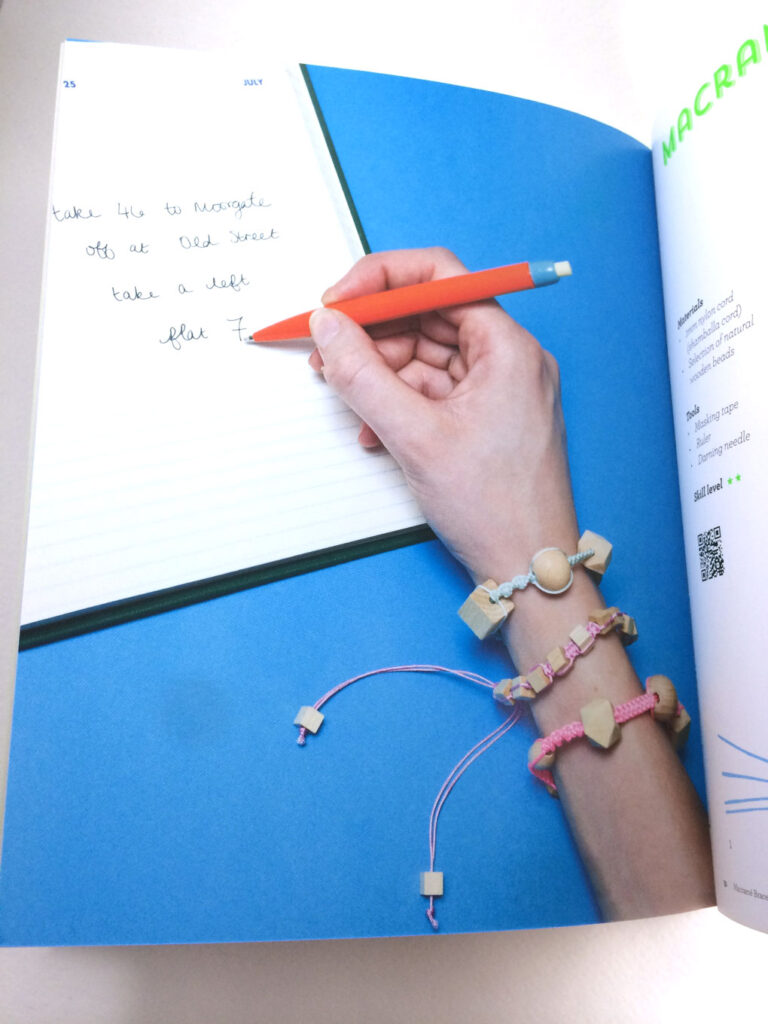 25 JULY
take 46 to Moorgate
off at Old Street
take a left
flat 7
MACRA
Materials
• 1mm nylon cord
(shamballa cord)
• Selection of natural
wooden beads
Tools
• Masking tape
• Ruler
• Darning needle
Skill level ★★
1
Macramé Brace